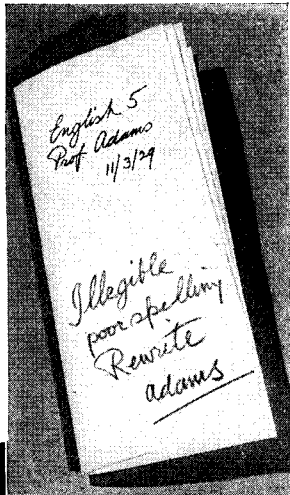 English 5
Prof. Adams
11/3/29
Illegible
poor spelling
Rewrite
Adams